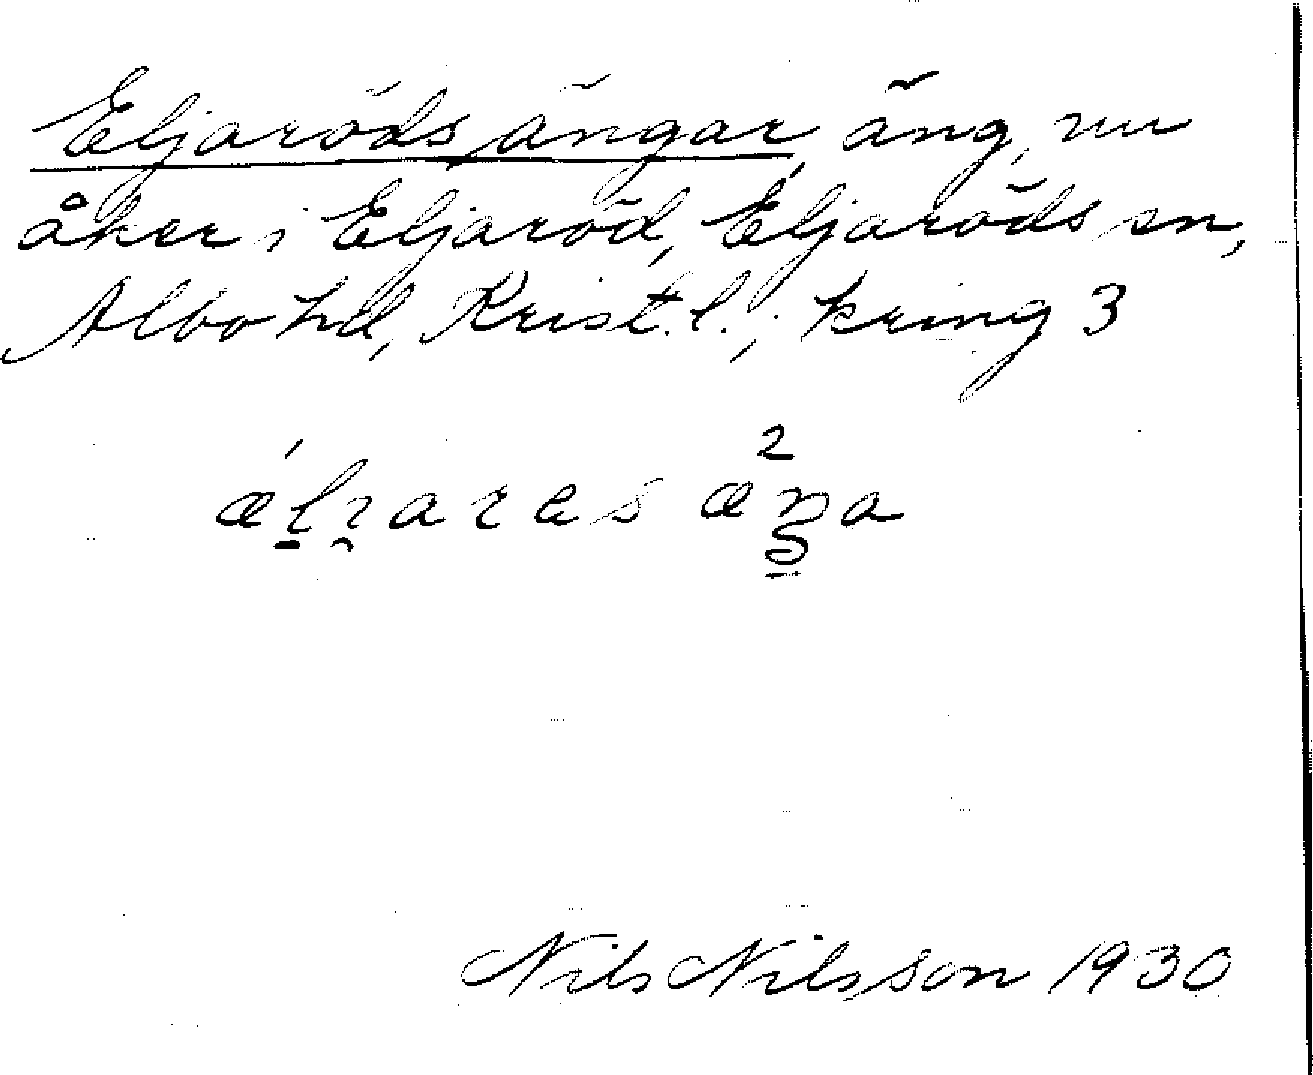 Eljaröds ängar, äng, nu
åker i Eljaröd, Eljaröds sn,
Albo hd, Krist. l.; kring 3
Nils Nilsson 1930